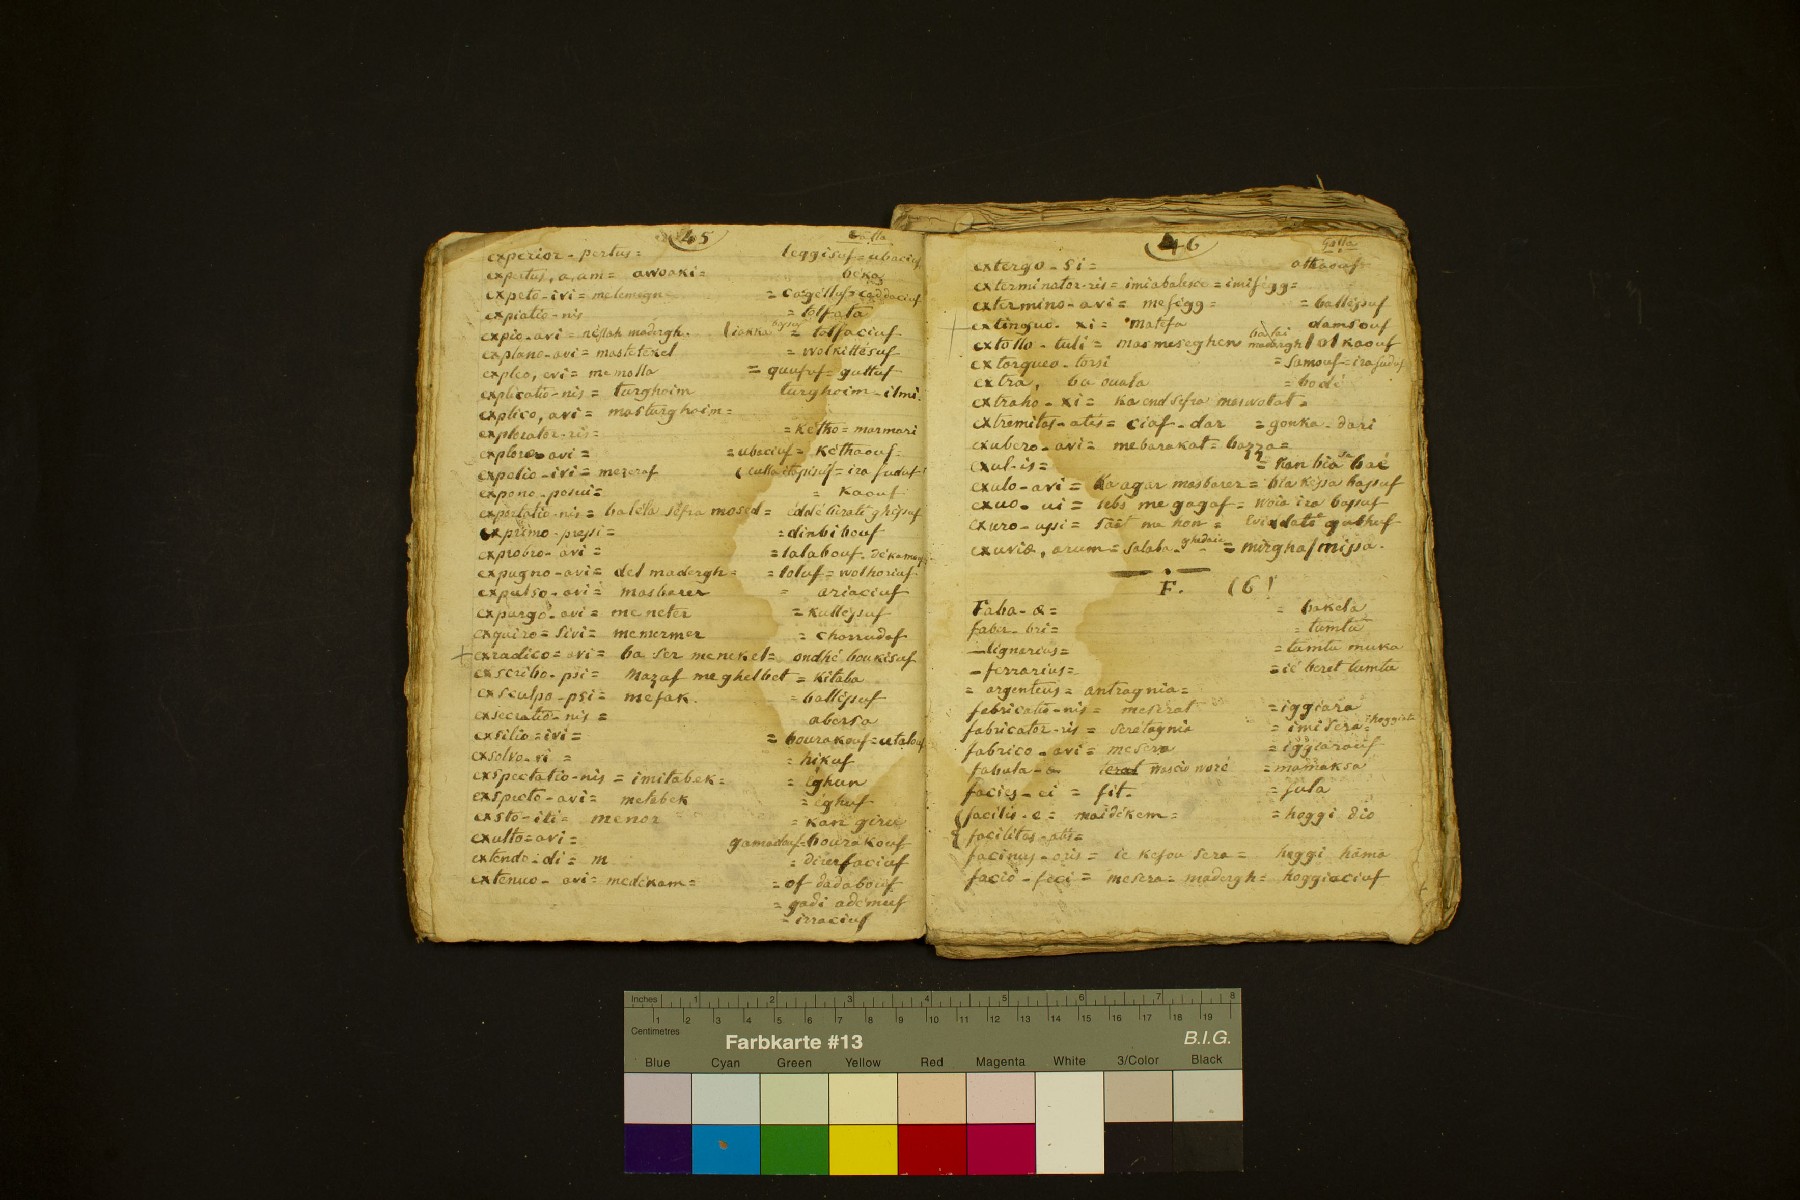 45
Galla
experior - pertus = leggisuf = ubaciuf
expertus, a, um = awoaki = beka
expeto - ivi = melemegn = cagélluf = caddaciuf
expiatio - nis = tolfata
expio - avi = nissah madergh. = tolfaciuf
explano - avi = mastetekel = wolkittésuf
expleo, evi = memolla = quufuf = guttuf
explicatio - nis = turghoim turghoim - ilmi.
explico, avi = masturghoim =
explorator - ris = = kétho = marmari
exploro - avi = = ubaciuf = kéthaouf =
expolio - ivi = mezeraf
expono - posui = = kaouf
exportatio - nis = baléla séfra mosed =
exprimo - pressi = = dinbibouf
exprobro - avi = = lalabouf.
expugno - avi = del madergh = = loluf = wolhoriuf
expulso - avi = masbarer = ariaciuf
expurgo - avi = meneter = kullessuf
exquiro = sivi = memermer = chorrudof
+ exradico = avi = ba ser menekel = ondhé boukisuf
exscribo - psi = mazaf meghelbet = kitaba
exsculpo - psi = mefak. = ballessuf
exsecratio - nis = abersa
exsilio = ivi = = bourakouf = utalouf
exsolvo - vi = = hikuf
exspectatio - nis = imitabek = = éghun
exspecto - avi = metebek = éghuf
exsto - iti = menor = kan giru
exulto = avi = gamaduf = bourakouf
extendo - di = m = diierfaciuf
extenuo - avi = medékam = = of dadabouf
= gadi ademuf
= irraciuf
46
Galla
extergo - si = athaouf
exterminator - ris = imiabalesce = imifégg =
extermino - avi = mefégg = = ballessuf
+ extinguo - xi = matefa damsouf
extollo - tuli = masmeseghen madergh ol kaouf
extorqueo - torsi = samouf = ira fuduf
extra, ba ouala = bodé
extraho - xi = ka end sefra mesvolat =
extremitas - atis = ciaf - dar = gonka - dari
exubero - avi = mebarakat = bazza =
exul - is = = kan bia sa baé
exulo - avi = ka agar masbarer = bia kessa bassuf
exuo - ui = lebs megagaf = woia ira bassuf
exuro - ussi =
exuviæ, arum = salaba - ghedaie = mirgha missa.
F. (6)
Faba - æ = = bakela
faber - bri = = tumtu
— lignarius = = tumtu muka
— ferrarius = = ié beret tumtu
= argenteus = antragnia =
fabricatio - nis = meserat = iggiara
fabricator - ris = seratagnia = imisera =
fabrico - avi = mesera = iggiarouf
fabula - æ = mamaksa
facies - ei = fit. = fula
facilis - e = maidékem = = hoggi dio
facilitas - atis =
facinus - oris = ie kefou sera = hoggi hama
facio - feci = mesera = madergh = hoggiaciuf
Inches 1 2 3 4 5 6 7 8
Centimetres 1 2 3 4 5 6 7 8 9 10 11 12 13 14 15 16 17 18 19
Farbkarte #13 B.I.G.
Blue Cyan Green Yellow Red Magenta White 3/Color Black